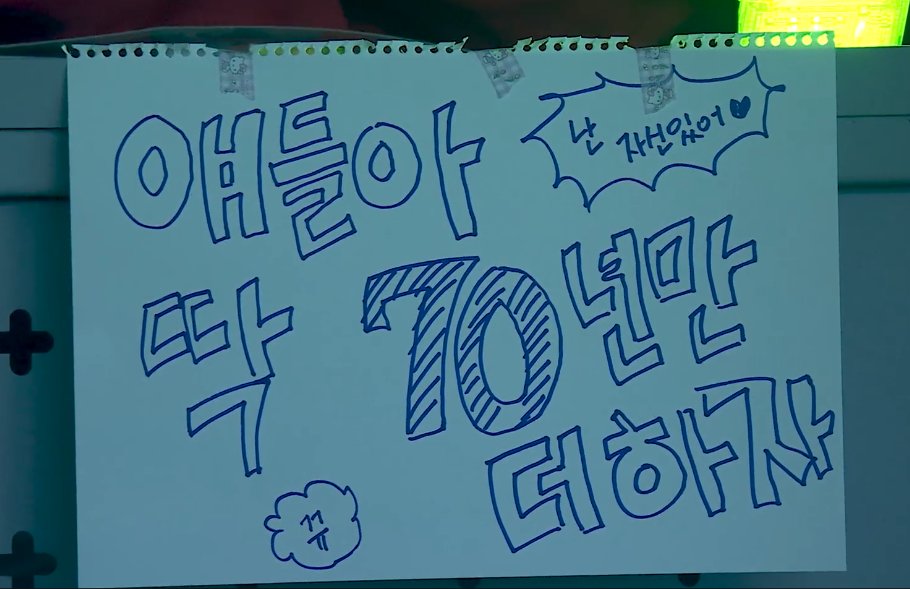 얘들아
난 자신있어♥
딱 70년만
더하자
ㄲㅠ